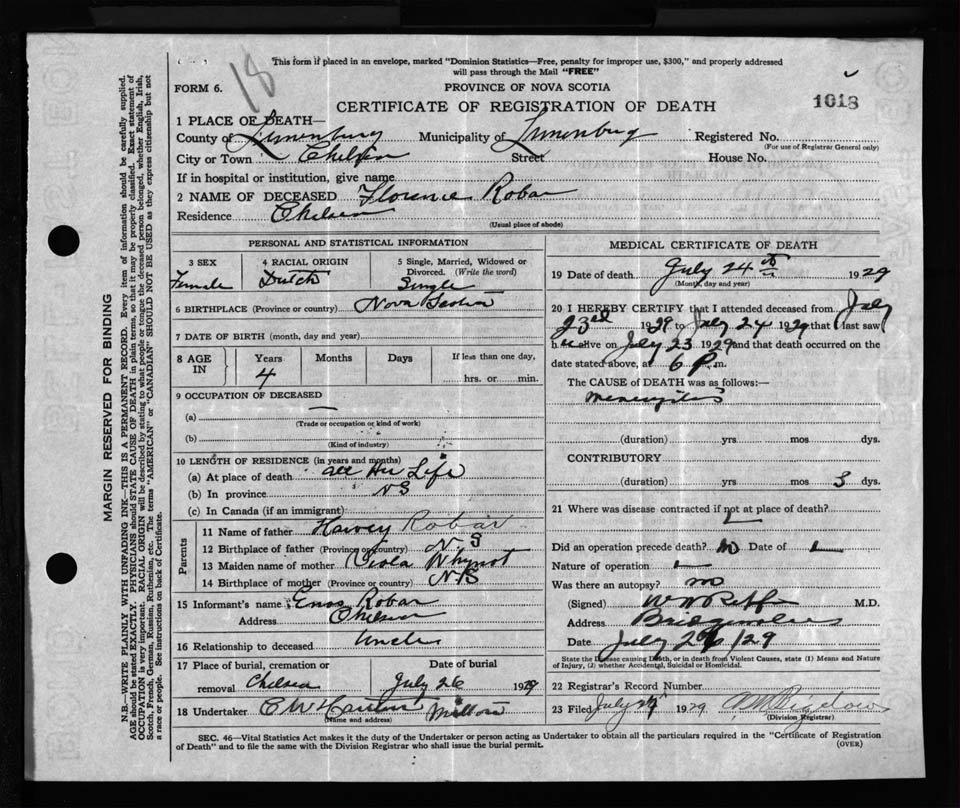 18
This form if placed in an envelope, marked "Dominion Statistics—Free, penalty for improper use, $300," and properly addressed
will pass through the Mail "FREE"
FORM 6.
PROVINCE OF NOVA SCOTIA
1018
CERTIFICATE OF REGISTRATION OF DEATH
1 PLACE OF DEATH—
County of Lunenburg Municipality of Lunenburg Registered No.
(For use of Registrar General only)
City or Town Chelsea Street House No.
If in hospital or institution, give name
2 NAME OF DECEASED Florence Robar
Residence Chelsea
(Usual place of abode)
PERSONAL AND STATISTICAL INFORMATION
3 SEX 4 RACIAL ORIGIN 5 Single, Married, Widowed or Divorced. (Write the word)
Female Dutch Single
6 BIRTHPLACE (Province or country) Nova Scotia
7 DATE OF BIRTH (month, day and year)
8 AGE IN Years Months Days If less than one day,
4 hrs. or min.
9 OCCUPATION OF DECEASED
(a) —
(Trade or occupation or kind of work)
(b)
(Kind of industry)
10 LENGTH OF RESIDENCE (in years and months)
(a) At place of death all Her Life
(b) In province NS
(c) In Canada (if an immigrant)
Parents
11 Name of father Harvey Robar
12 Birthplace of father (Province or country) N S
13 Maiden name of mother Viola Whynot
14 Birthplace of mother (Province or country) NS
15 Informant's name Enos Robar
Address Chelsea
16 Relationship to deceased Uncle
17 Place of burial, cremation or removal Date of burial
Chelsea July 26 1929
18 Undertaker Milton
(Name and address)
MEDICAL CERTIFICATE OF DEATH
19 Date of death July 24th 1929
(Month, day and year)
20 I HEREBY CERTIFY that I attended deceased from July
23rd 1929 to July 24 1929 that I last saw
h alive on July 23 1929 and that death occurred on the
date stated above, at 6 P. m.
The CAUSE of DEATH was as follows:—
Meningitis
(duration) yrs. mos. dys.
CONTRIBUTORY
(duration) yrs. mos. 3 dys.
21 Where was disease contracted if not at place of death?
Did an operation precede death? no Date of
Nature of operation
Was there an autopsy? no
(Signed) M.D.
Address Bridgewater
Date July 26/29
State the Disease causing Death, or in death from Violent Causes, state (1) Means and Nature
of Injury, (2) whether Accidental, Suicidal or Homicidal.
22 Registrar's Record Number
23 Filed July 1929
(Division Registrar)
SEC. 46—Vital Statistics Act makes it the duty of the Undertaker or person acting as Undertaker to obtain all the particulars required in the "Certificate of Registration
of Death" and to file the same with the Division Registrar who shall issue the burial permit.
(OVER)
MARGIN RESERVED FOR BINDING
N.B.—WRITE PLAINLY WITH UNFADING INK—THIS IS A PERMANENT RECORD. Every item of information should be carefully supplied.
AGE should be stated EXACTLY. PHYSICIANS should STATE CAUSE OF DEATH in plain terms, so that it may be properly classified. Exact statement of
OCCUPATION is very important. RACIAL ORIGIN will be described by stating to what people or tongue the deceased person belonged, whether English, Irish,
Scotch, French, German, Russian, Ruthenian, etc. The terms "AMERICAN" or "CANADIAN" SHOULD NOT BE USED as they express citizenship but not
a race or people. See instructions on back of Certificate.